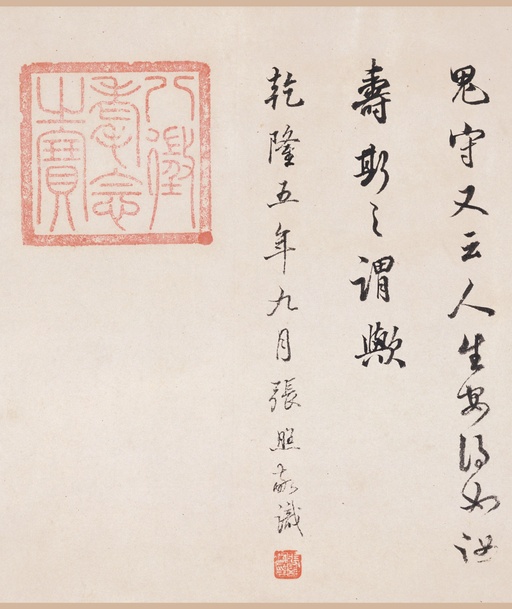 鬼守又云人生安得如汝
壽斯之謂歟
乾隆五年九月張照敬識
八徵耄念之寶